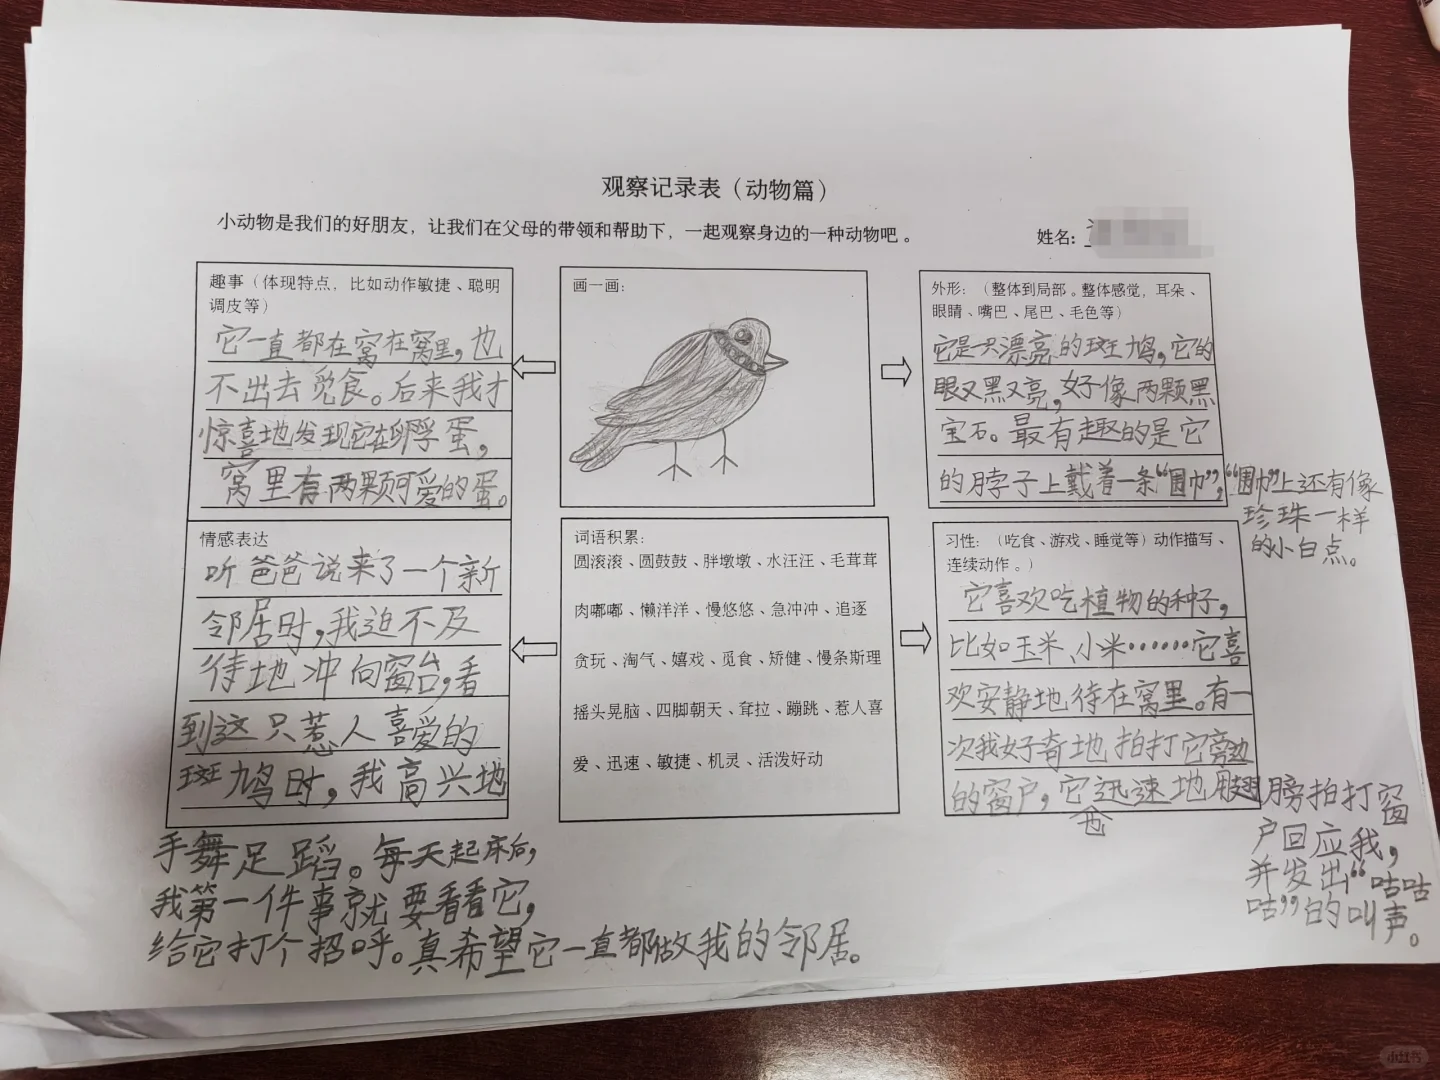 观察记录表（动物篇）
小动物是我们的好朋友，让我们在父母的带领和帮助下，一起观察身边的一种动物吧。
姓名：
趣事（体现特点，比如动作敏捷、聪明
调皮等）
它一直都在窝在窝里，也
不出去觅食。后来我才
惊喜地发现它在孵蛋，
窝里有两颗可爱的蛋。
画一画：
外形：（整体到局部。整体感觉，耳朵、
眼睛、嘴巴、尾巴、毛色等）
它是只漂亮的斑鸠，它的
眼又黑又亮，好像两颗黑
宝石。最有趣的是它
的脖子上戴着一条“围巾”，“围巾”上还有像
珍珠一样
的小白点。
情感表达
听爸爸说来了一个新
邻居时，我迫不及
待地冲向窗台，看
到这只惹人喜爱的
斑鸠时，我高兴地
手舞足蹈。每天起床后，
我第一件事就要看看它，
给它打个招呼。真希望它一直都做我的邻居。
词语积累：
圆滚滚、圆鼓鼓、胖墩墩、水汪汪、毛茸茸
肉嘟嘟、懒洋洋、慢悠悠、急冲冲、追逐
贪玩、淘气、嬉戏、觅食、矫健、慢条斯理
摇头晃脑、四脚朝天、耷拉、蹦跳、惹人喜
爱、迅速、敏捷、机灵、活泼好动
习性：（吃食、游戏、睡觉等）动作描写、
连续动作。）
它喜欢吃植物的种子，
比如玉米、小米……它喜
欢安静地待在窝里。有一
次我好奇地拍打它旁边
的窗户，它也迅速地用翅膀拍打窗
户回应我，
并发出“咕咕
咕”的叫声。
小红书